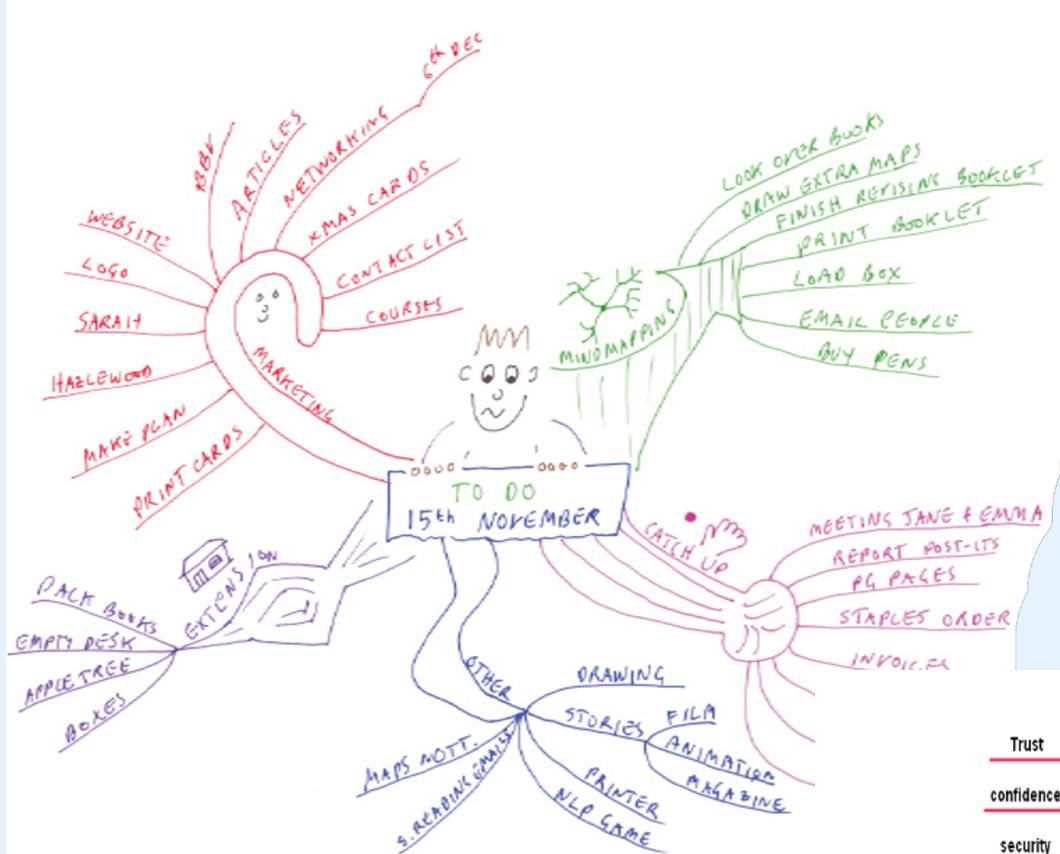 TO DO
15th NOVEMBER
MARKETING
WEBSITE
LOGO
SARAH
HAZLEWOOD
MAKE PLAN
PRINT CARDS
ARTICLES
NETWORKING
6th DEC
XMAS CARDS
CONTACT LIST
COURSES
MINDMAPPING
LOOK OVER BOOKS
DRAW EXTRA MAPS
FINISH REVISING BOOKLET
PRINT BOOKLET
LOAD BOX
EMAIL PEOPLE
BUY PENS
CATCH UP
MEETING JANE & EMMA
REPORT POST-ITS
PG PAGES
STAPLES ORDER
INVOICES
OTHER
DRAWING
STORIES
FILM
ANIMATION
MAGAZINE
PRINTER
NLP GAME
S. READING EMAILS
MAPS NOTT.
EXTENSION
PACK BOOKS
EMPTY DESK
APPLE TREE
BOXES
Trust
confidence
security